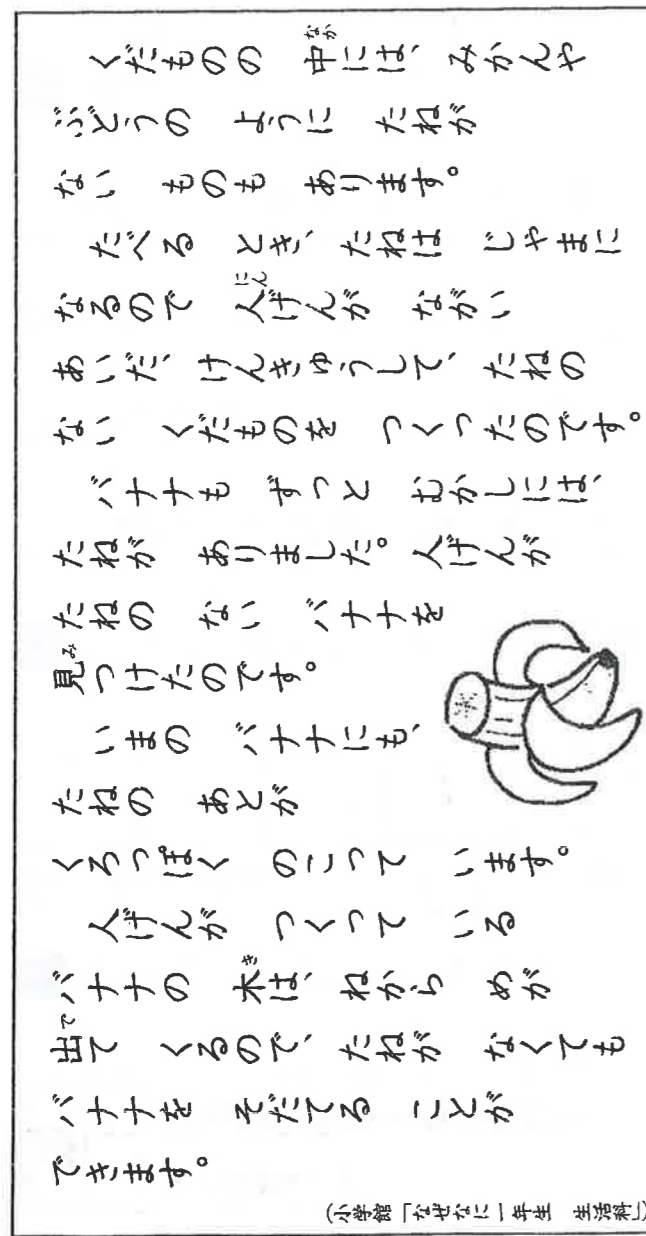 くだものの 中には、みかんや
ぶどうの ように たねが
ない ものも あります。
たべる とき、たねは じゃまに
なるので 人げんが ながい
あいだ、けんきゅうして、たねの
ない くだものを つくったのです。
バナナも ずっと むかしには、
たねが ありました。人げんが
たねの ない バナナを
見つけたのです。
いまの バナナにも、
たねの あとが
くろっぽく のこって います。
人げんが つくって いる
バナナの 木は、ねから めが
出て くるので、たねが なくても
バナナを そだてる ことが
できます。
(小学館「なぜなに一年生 生活科」)